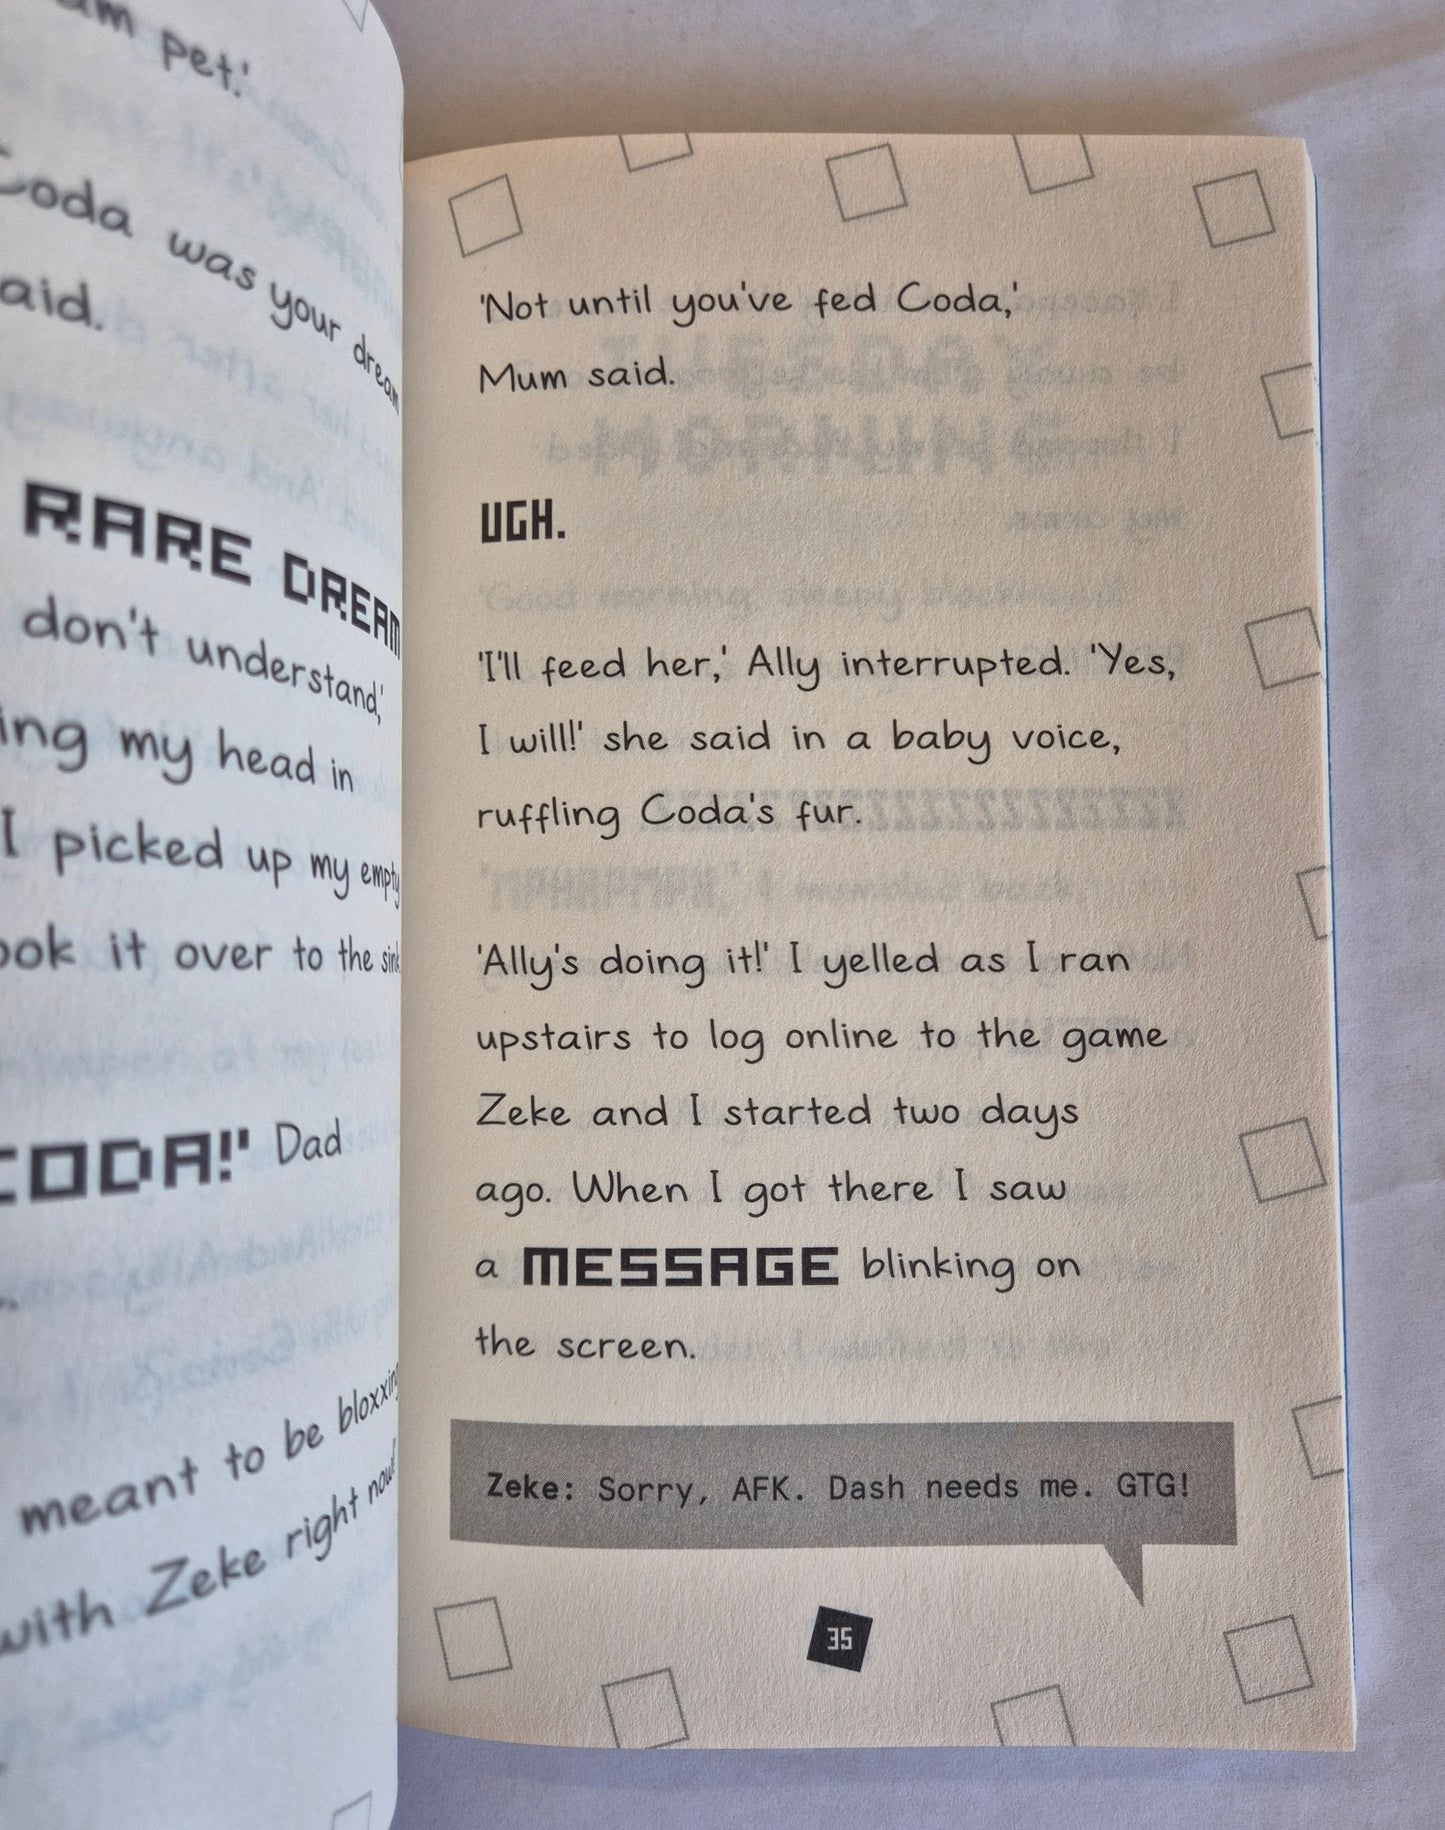 pet.'
Coda was your dream
said.
RARE DREAM
don't understand,'
my head in
I picked up my empty
it over to the sink
CODA!' Dad
meant to be bloxxing
with Zeke right now!'
'Not until you've fed Coda,'
Mum said.
UGH.
'I'll feed her,' Ally interrupted. 'Yes,
I will!' she said in a baby voice,
ruffling Coda's fur.
'Ally's doing it!' I yelled as I ran
upstairs to log online to the game
Zeke and I started two days
ago. When I got there I saw
a MESSAGE blinking on
the screen.
Zeke: Sorry, AFK. Dash needs me. GTG!
35